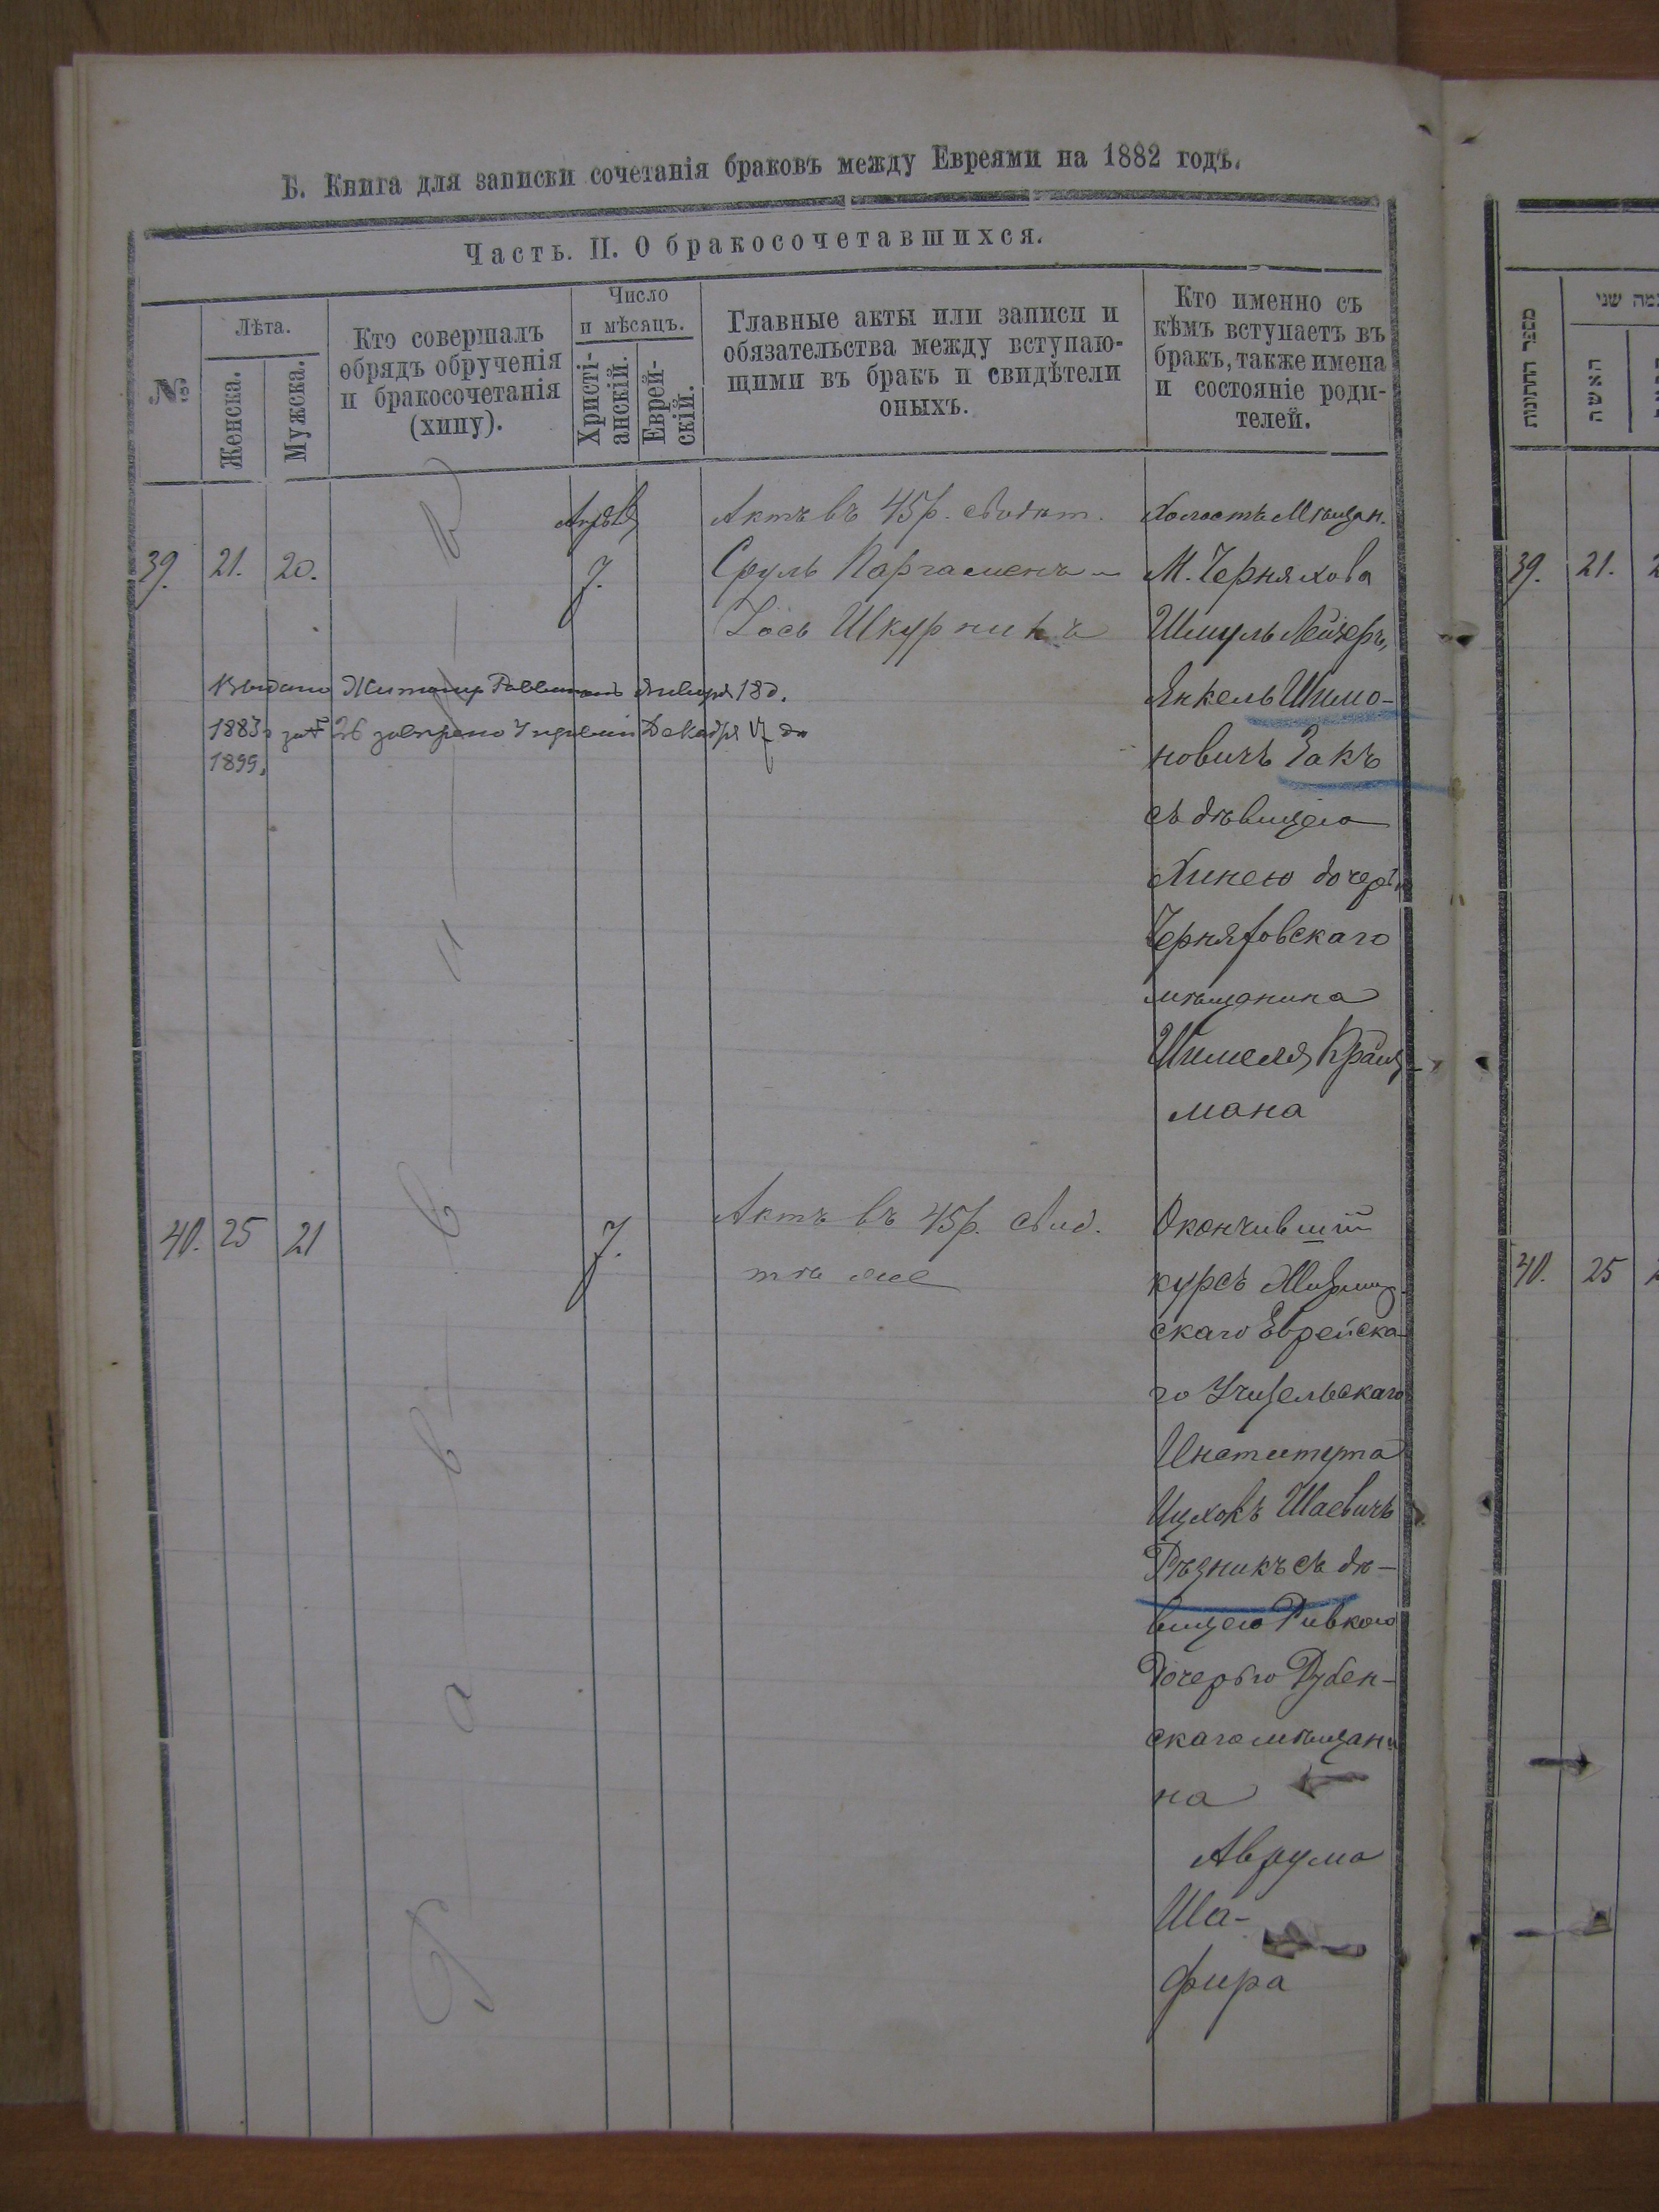 Б. Книга для записки сочетанія браковъ между Евреями на 1882 годъ.
Часть. II. О бракосочетавшихся.
№
Лѣта.
Женска.
Мужска.
Кто совершалъ
обрядъ обрученія
и бракосочетанія
(хипу).
Число
и мѣсяцъ.
Христі-
анскій.
Еврей-
скій.
Главные акты или записи и
обязательства между вступаю-
щими въ бракъ и свидѣтели
оныхъ.
Кто именно съ
кѣмъ вступаетъ въ
бракъ, также имена
и состояніе роди-
телей.
39.
21.
20.
7.
Актъ въ 45 р.
Сруль Паргаменъ
Іось Шкурникъ
Холостъ Мѣщан.
М. Черняхова
Шмуль Лейзеръ,
Янкель Шимо-
новичъ Закъ
съ дѣвицею
Хинею дочерью
Черняховскаго
мѣщанина
Шмеля Крайз-
мана
Выдано Житомир Раввиномъ Января 18 д.
1883 за № 26 Декабря
1899.
40.
25
21
7.
Актъ въ 45 р. свид.
тѣ же
Окончившій
курсъ Житомир-
скаго Еврейска-
го Учительскаго
Института
Ицхокъ Шаевичъ
Рѣзникъ съ дѣ-
вицею Ривкою
дочерью Дубен-
скаго мѣщани
на
Аврума
Ша-
фира
Р а в в и н
מספר החתונות
האשה
כמה שני
39.
21.
40.
25